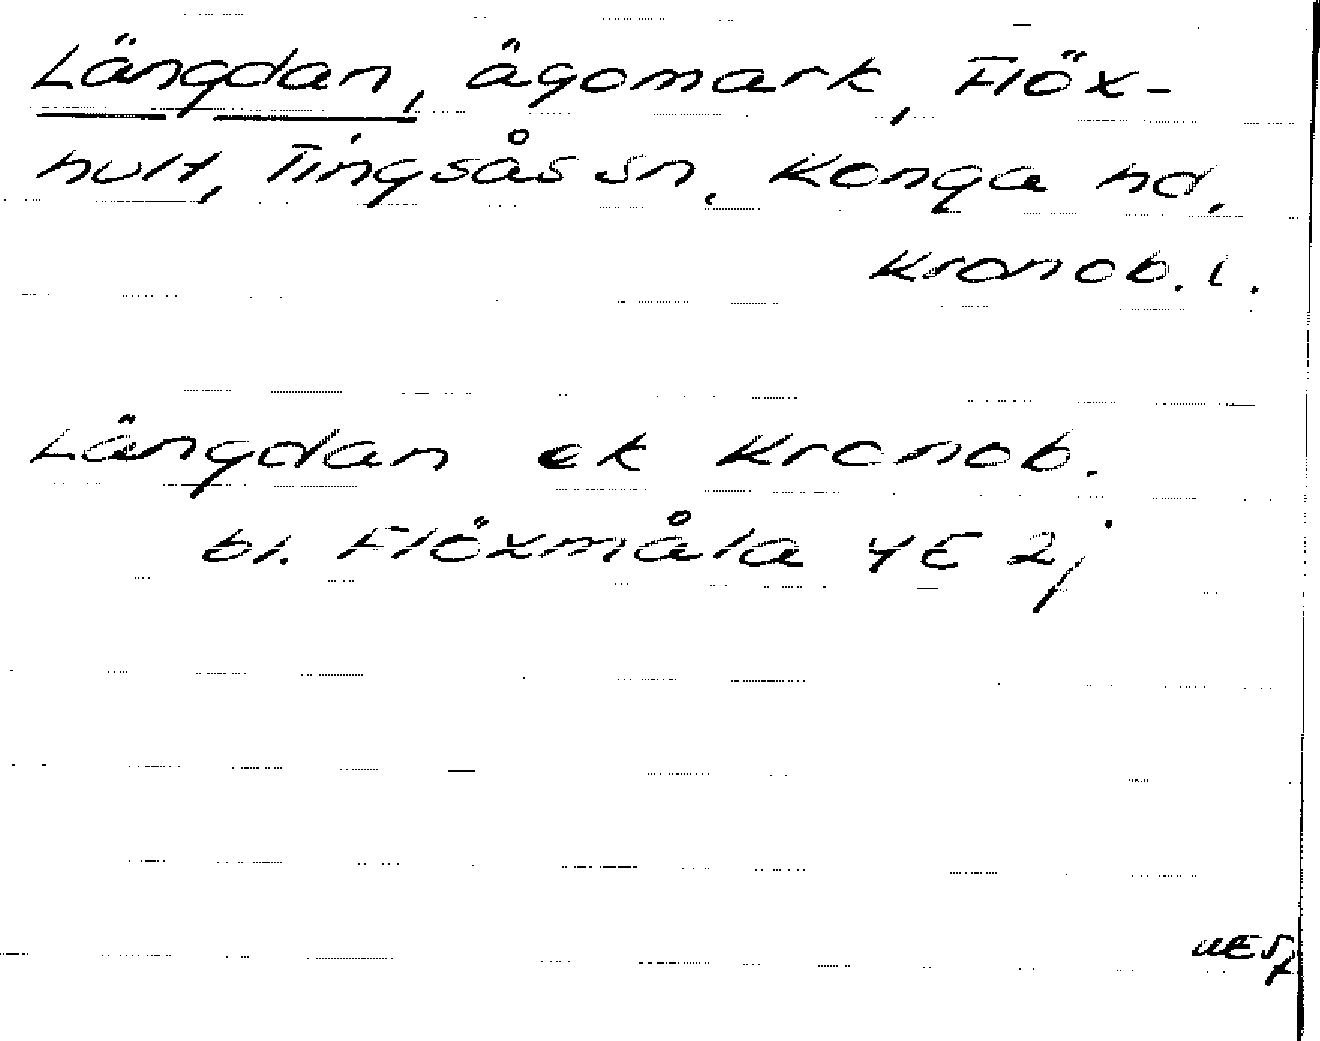 Längdan, ägomark, Flöx-
hult, Tingsås sn. Konga hd.
Kronob. l.
Längdan ek Kronob.
bl. Flöxmåla 4E 2j